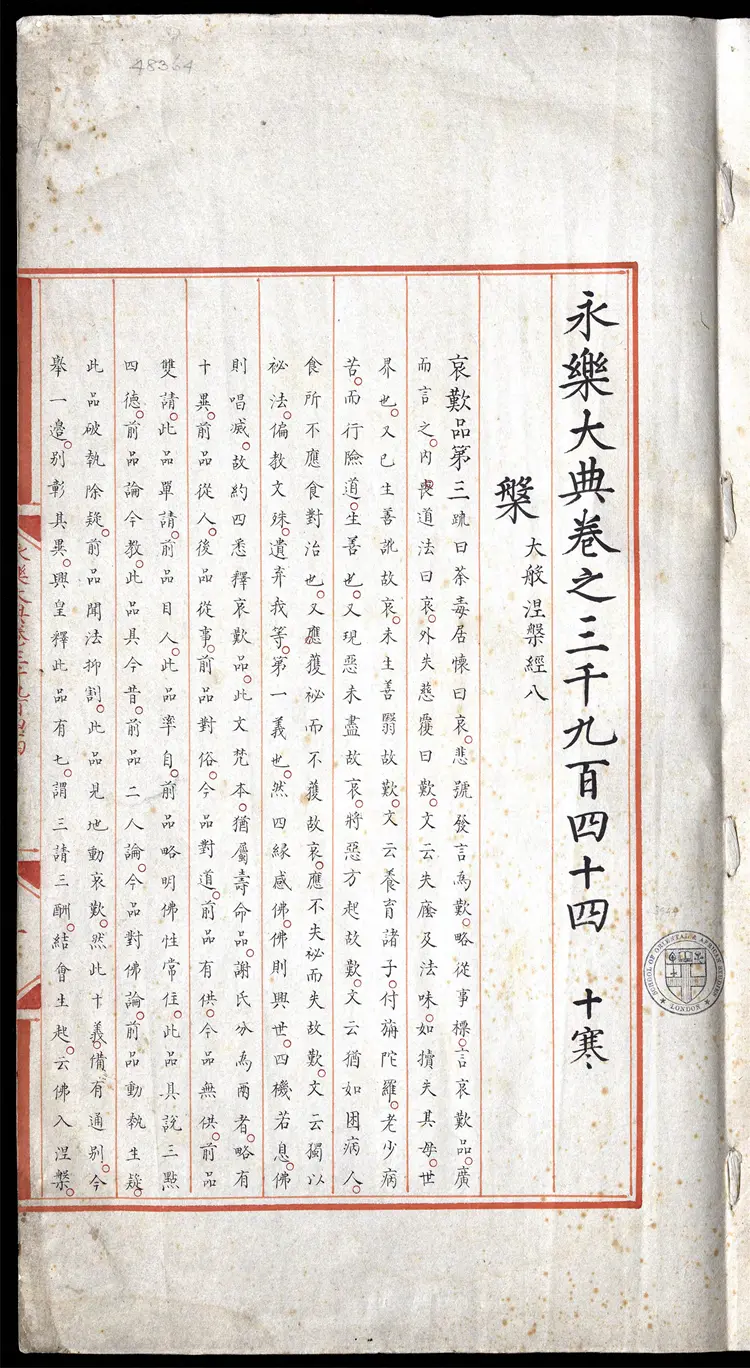 48364
永樂大典卷之三千九百四十四 十寒
槃 大般涅槃經八
哀歎品第三 䟽曰荼毒居懷曰哀。悲號發言為歎。略從事標。言哀歎品。廣
而言之。内喪道法曰哀。外失慈覆曰歎。文云失廕及法味。如犢失其母。世
界也。又已生善訛故哀。未生善翳故歎。文云養育諸子。付旃陀羅。老少病
苦。而行險道。生善也。又現惡未盡故哀。將惡方起故歎。文云猶如困病人。
食所不應食對治也。又應獲祕而不獲故哀。應不失祕而失故歎。文云獨以
祕法。偏教文殊。遺弃我等。第一義也。然四緣感佛。佛則興世。四機若息。佛
則唱滅。故約四悉釋哀歎品。此文梵本。猶屬壽命品。謝氏分為兩者。略有
十異。前品從人。後品從事。前品對俗。今品對道。前品有供。今品無供。前品
雙請。此品單請。前品目人。此品率自。前品略明佛性常住。此品具說三點
四德。前品論今教。此品具今昔。前品二人論。今品對佛論。前品動執生疑。
此品破執除疑。前品聞法抑割。此品見地動哀歎。然此十義。備有通別。今
舉一邊。别彰其異。興皇釋此品有七。謂三請三酬。結會生起。云佛入涅槃。
SCHOOL OF ORIENTAL & AFRICAN STUDIES
LONDON